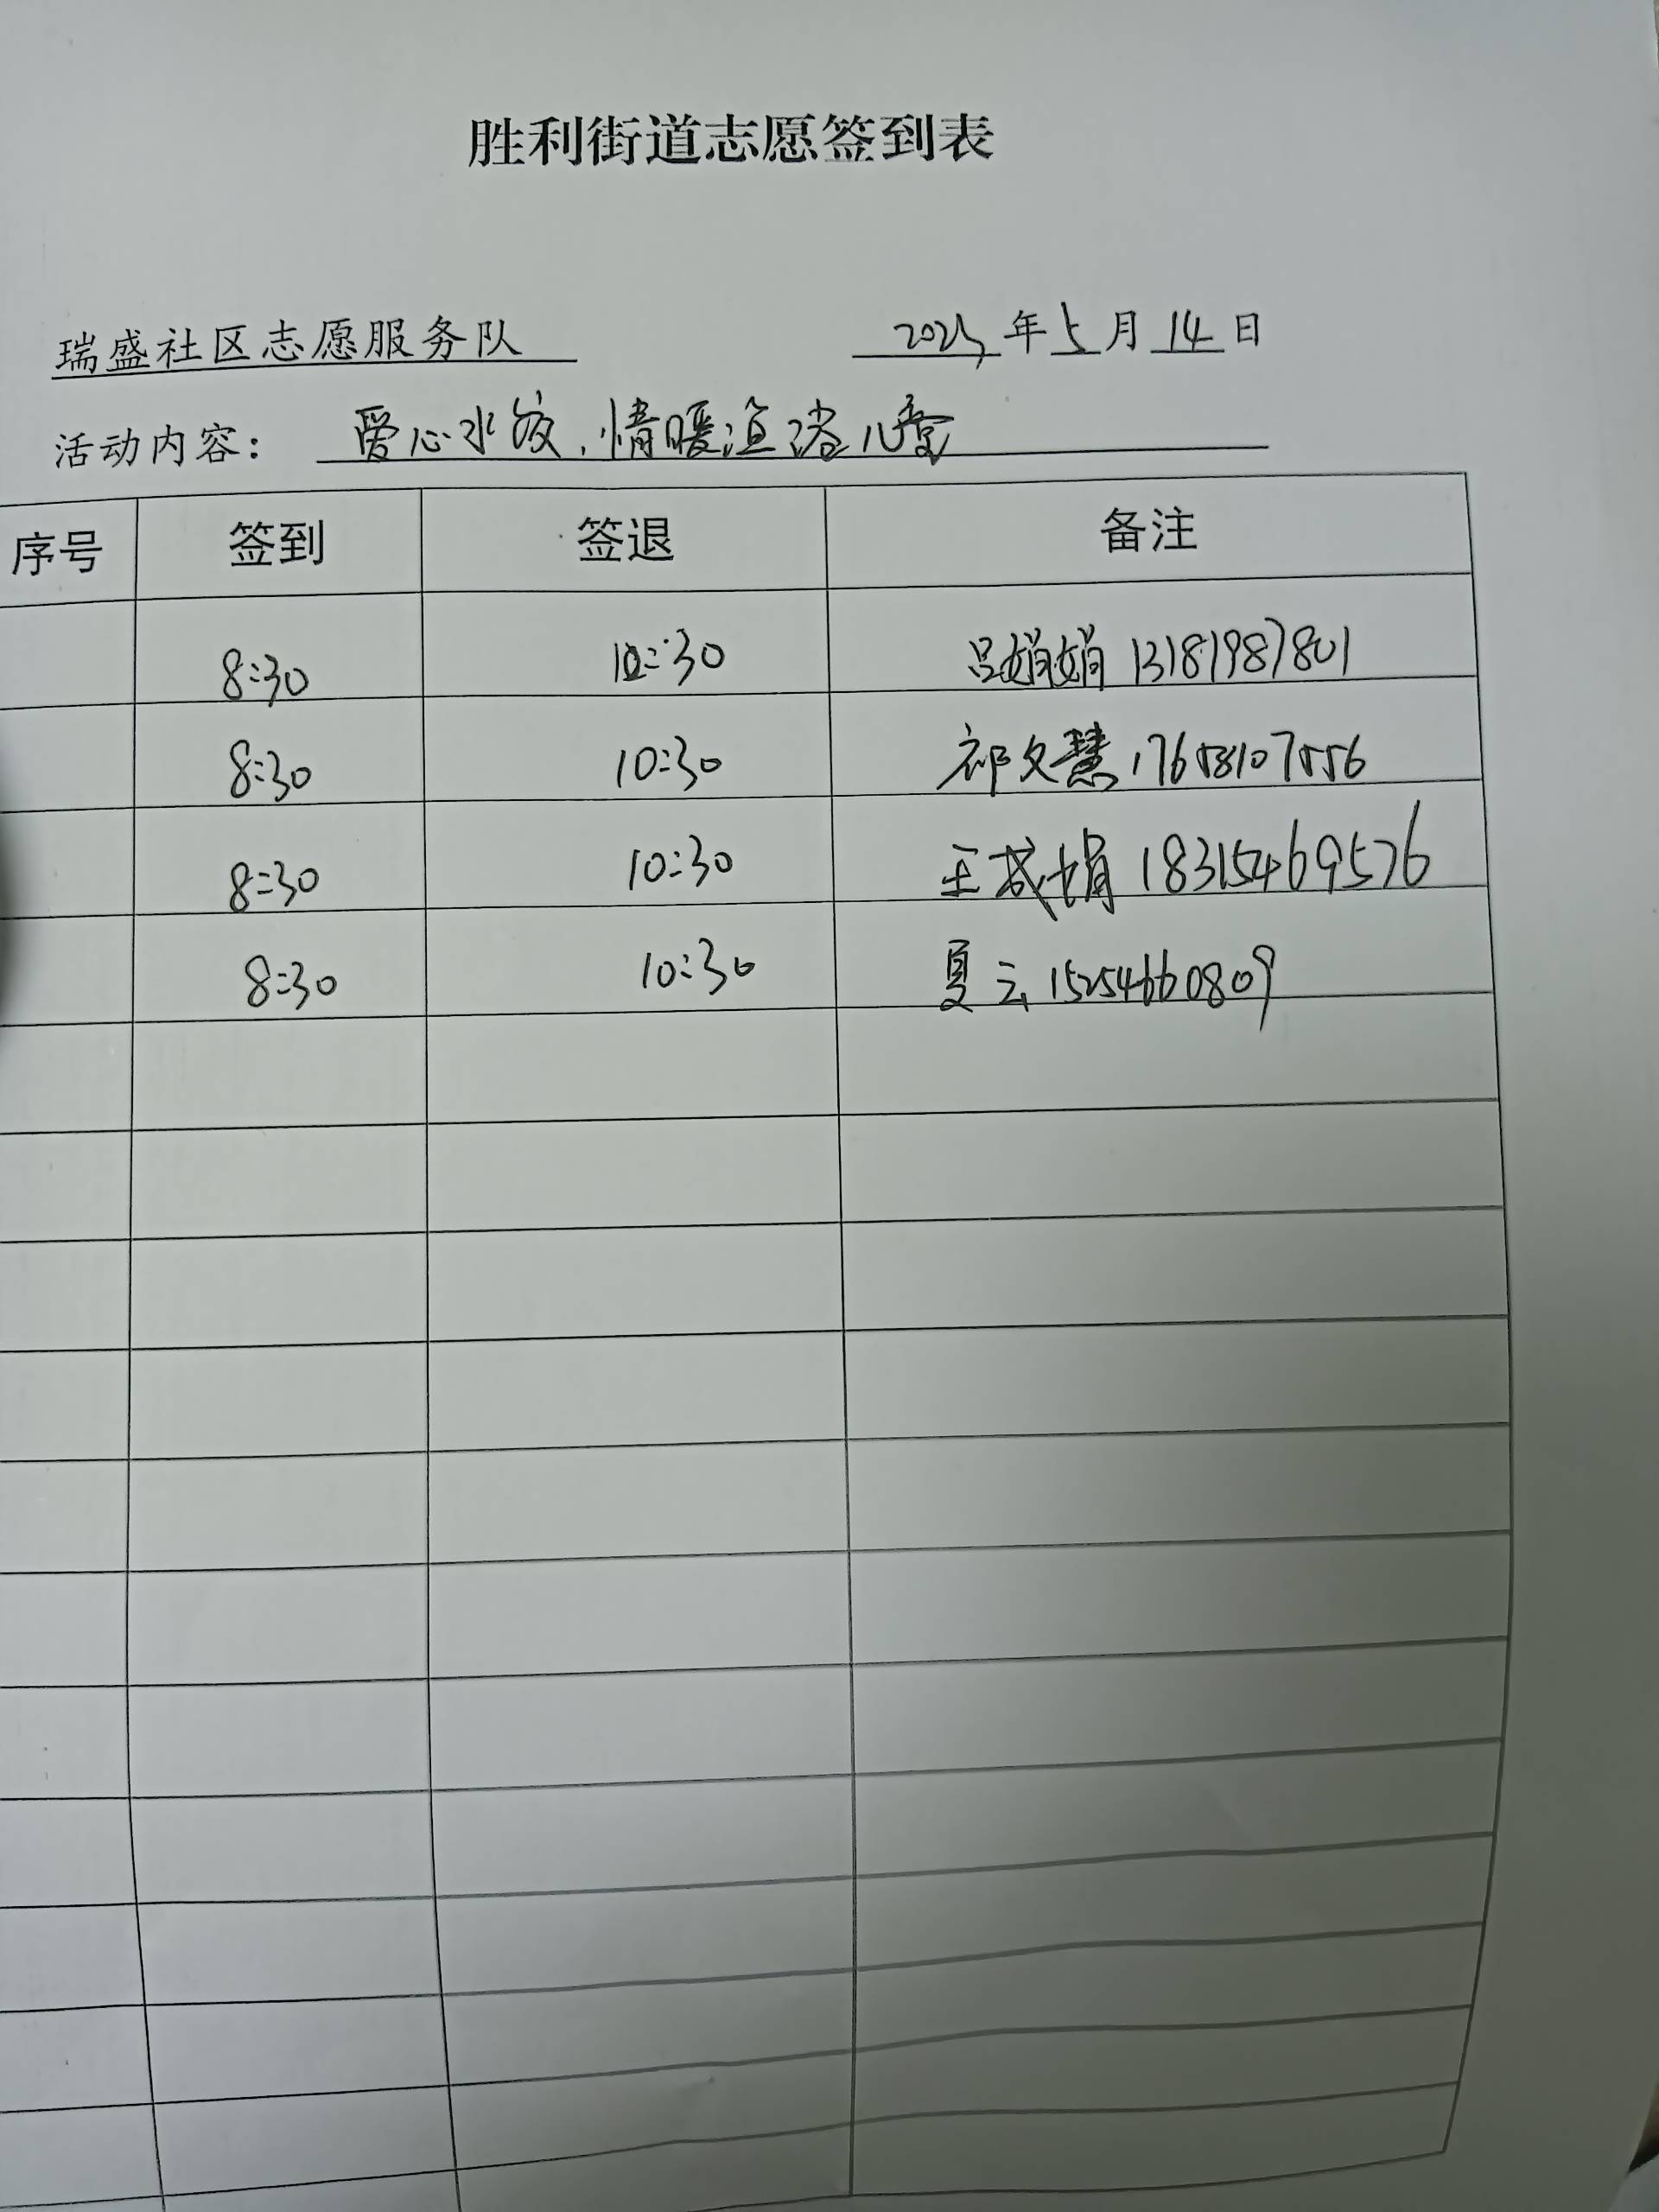 胜利街道志愿签到表
瑞盛社区志愿服务队 2025年5月14日
活动内容： 爱心水饺，情暖渲渚儿童
序号 签到 签退 备注
8:30 10:30 吕娟娟 13181987801
8:30 10:30 祁文慧 17658107556
8:30 10:30 王成娟 18315469576
8:30 10:30 夏云 15254660809